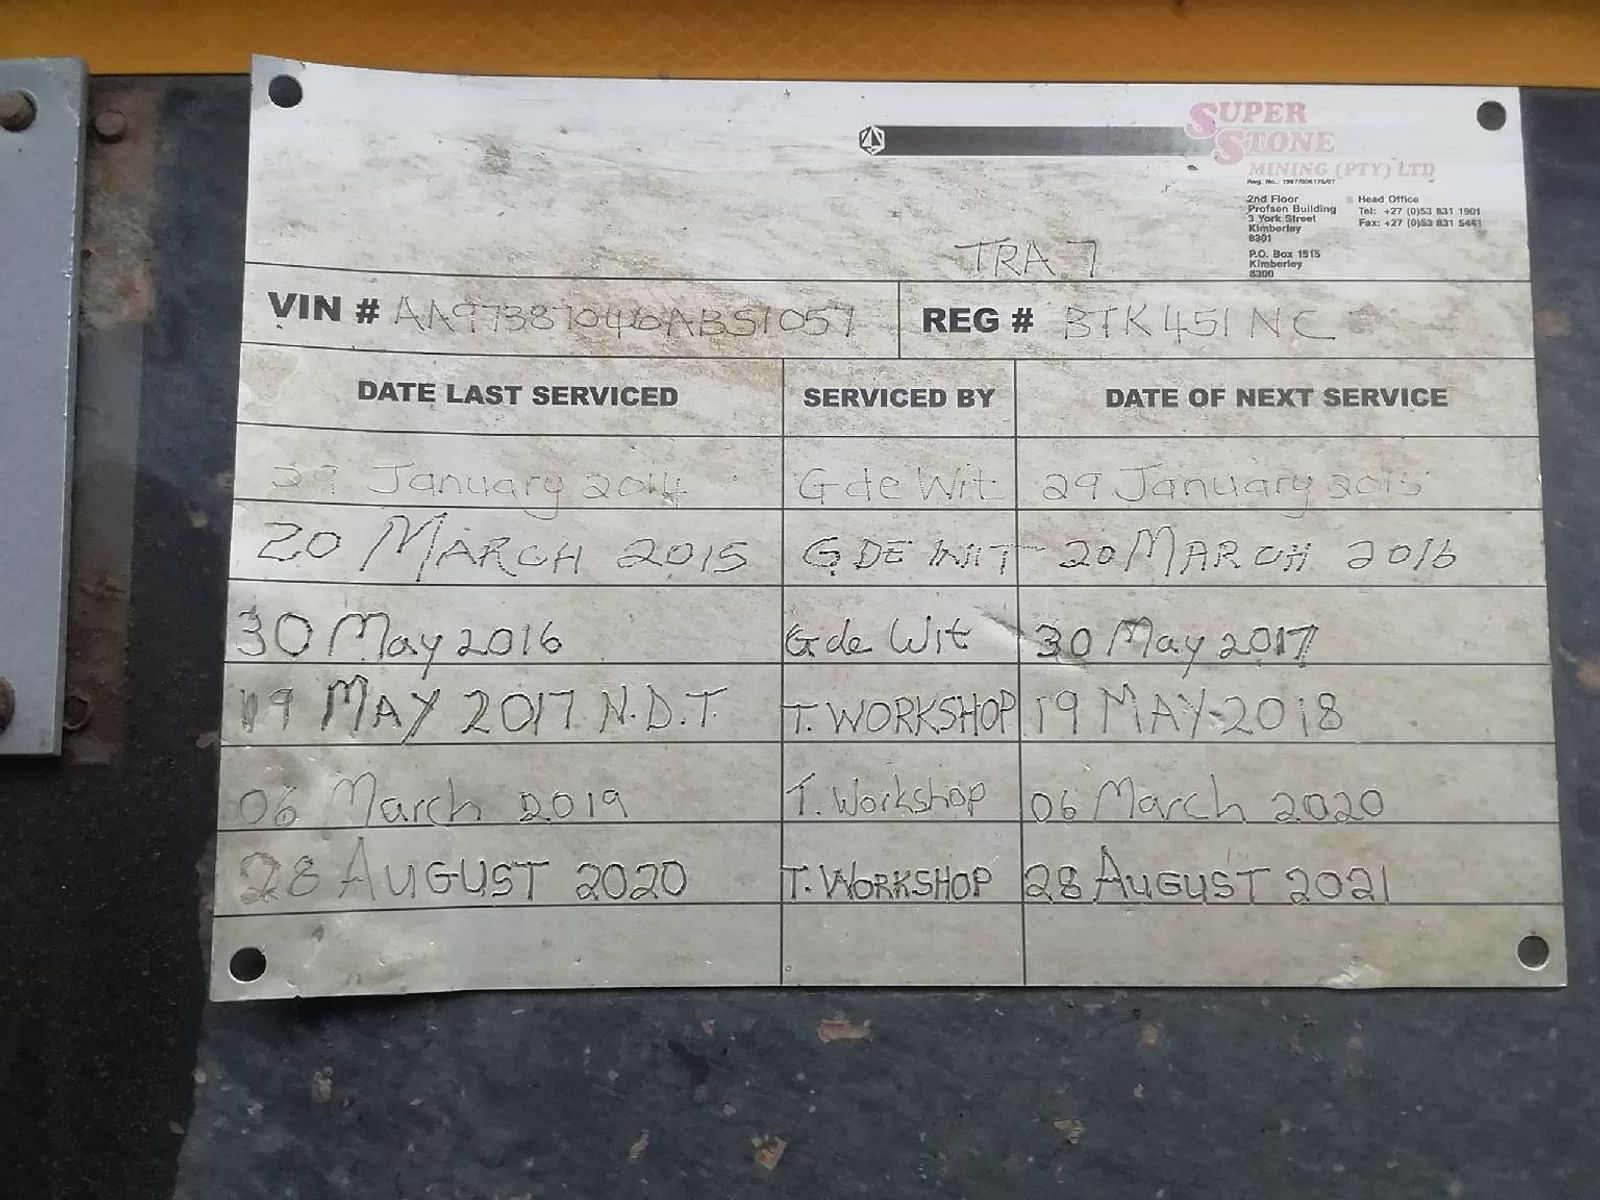 SUPER
STONE
MINING (PTY) LTD
2nd Floor
Profsen Building
3 York Street
Kimberley
8301
P.O. Box 1515
Kimberley
8300
Head Office
Tel: +27 (0)53 831 1901
Fax: +27 (0)53 831 5441
TRA 7
VIN #
REG # BTK 451 NC
DATE LAST SERVICED SERVICED BY DATE OF NEXT SERVICE
29 January 2014 G de Wit 29 January 2015
20 MARCH 2015 G DE WIT 20 MARCH 2016
30 May 2016 G de Wit 30 May 2017
19 MAY 2017 N.D.T. T. WORKSHOP 19 MAY-2018
06 March 2019 T. Workshop 06 March 2020
28 AUGUST 2020 T. WORKSHOP 28 AUGUST 2021